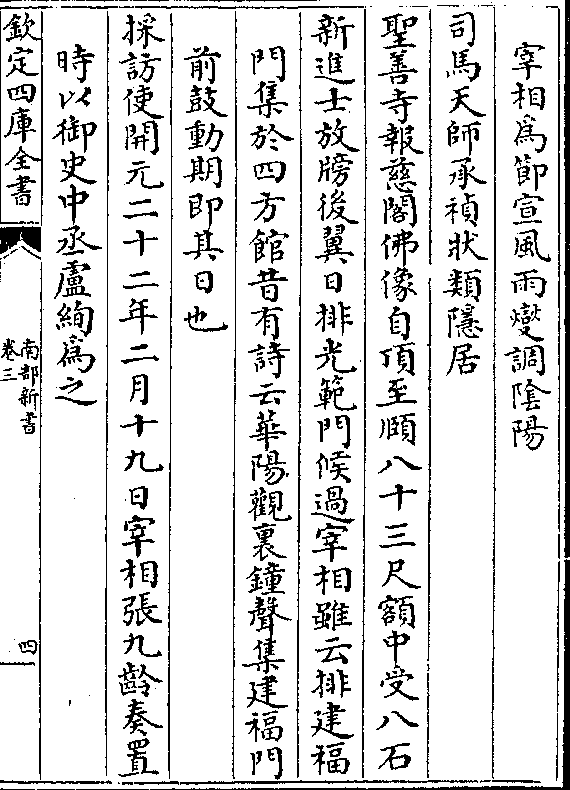 宰相爲節宣風雨燮調陰陽
司馬天師承禎狀類隱居
聖善寺報慈閣佛像自頂至頤八十三尺額中受八石
新進士放牓後翼日排光範門候過宰相雖云排建福
門集於四方館昔有詩云華陽觀裏鐘聲集建福門
前鼓動期即其日也
採訪使開元二十二年二月十九日宰相張九齡奏置
時以御史中丞盧絢爲之
欽定四庫全書
南部新書
卷三
四